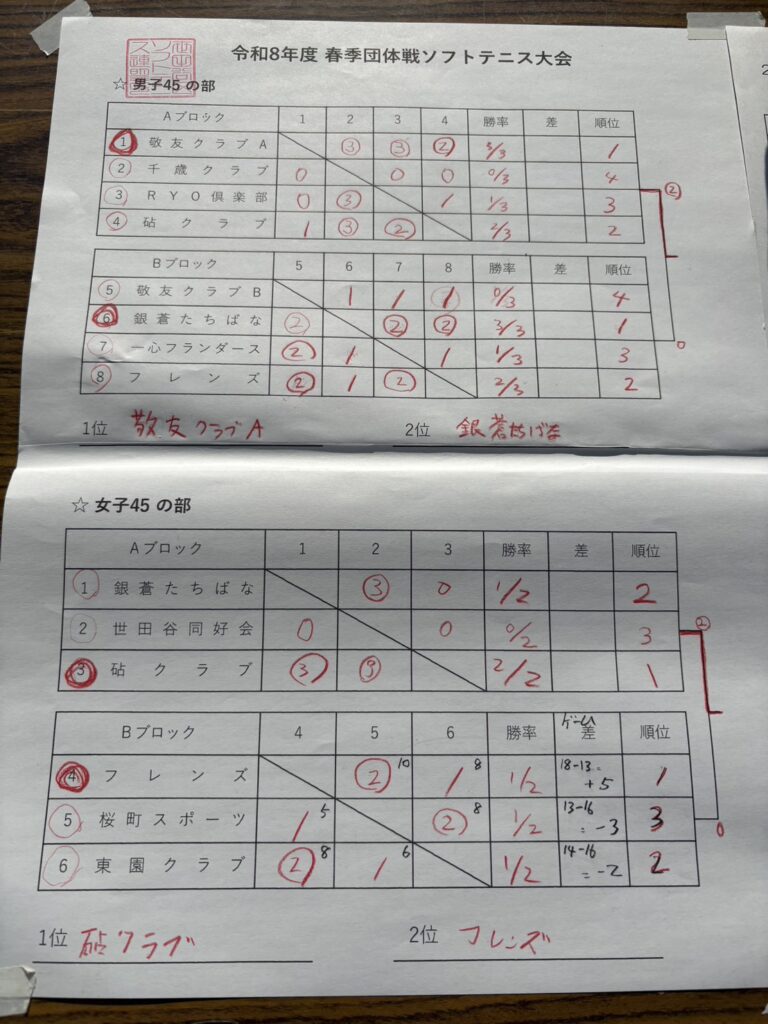 令和8年度 春季団体戦ソフトテニス大会
☆ 男子45 の部
Aブロック 1 2 3 4 勝率 差 順位
① 敬友クラブA ③ ③ ② 3/3 1
② 千歳クラブ 0 0 0 0/3 4
③ RYO倶楽部 0 ③ 1 1/3 3
④ 砧クラブ 1 ③ ② 2/3 2
②
0
Bブロック 5 6 7 8 勝率 差 順位
⑤ 敬友クラブB 1 1 1 0/3 4
⑥ 銀蒼たちばな ② ② ② 3/3 1
⑦ 一心フランダース ② 1 1 1/3 3
⑧ フレンズ ② 1 ② 2/3 2
1位 敬友クラブA 2位 銀蒼たちばな
☆ 女子45 の部
Aブロック 1 2 3 勝率 差 順位
① 銀蒼たちばな ③ 0 1/2 2
② 世田谷同好会 0 0 0/2 3
③ 砧クラブ ③ ③ 2/2 1
②
0
Bブロック 4 5 6 勝率 ゲーム差 順位
④ フレンズ ② 10 1 8 1/2 18-13= +5 1
⑤ 桜町スポーツ 1 5 ② 8 1/2 13-16 =-3 3
⑥ 東園クラブ ② 8 1 6 1/2 14-16 =-2 2
1位 砧クラブ 2位 フレンズ